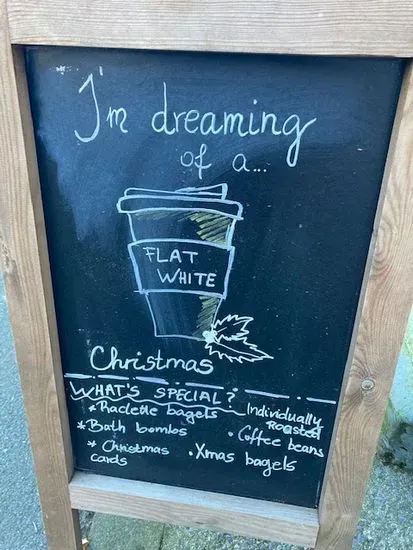 I'm dreaming
of a...
FLAT
WHITE
Christmas
WHAT'S SPECIAL?
* Raclette bagels
* Bath bombs
* Christmas
cards
Individually
Roasted
• Coffee beans
• Xmas bagels